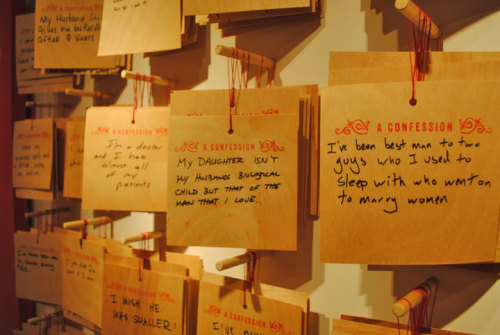 My Husband Still
gives me butterflies
after 8 years
A CONFESSION
A CONFESSION
I'm a doctor
and I hate
almost all
of my
patients
A CONFESSION
MY DAUGHTER ISN'T
MY HUSBANDS BIOLOGICAL
CHILD BUT THAT OF THE
MAN THAT I LOVE.
A CONFESSION
I've been best man to two
guys who I used to
sleep with who went on
to marry women
A CONFESSION
I WISH HE
WAS SMALLER!
A CONFESSION
I've